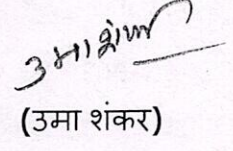 उमाशंकर
(उमा शंकर)